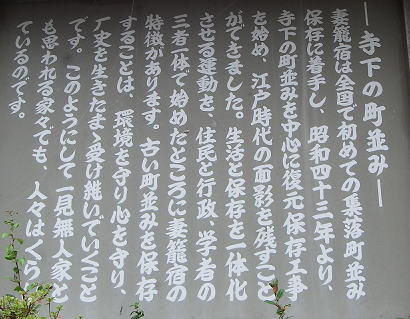 ― 寺下の町並み ―
妻籠宿は全国で初めての集落町並み
保存に着手し、昭和四十三年より、
寺下の町並みを中心に復元保存工事
を始め、江戸時代の面影を残すこと
ができました。生活と保存を一体化
させる運動を、住民と行政、学者の
三者一体で始めたところに妻籠宿の
特徴があります。古い町並みを保存
することは、環境を守り心を守り、
歴史を生きたまゝ受け継いでいくこと
です。このようにして一見無人家と
も思われる家々でも、人々はくらし
ているのです。